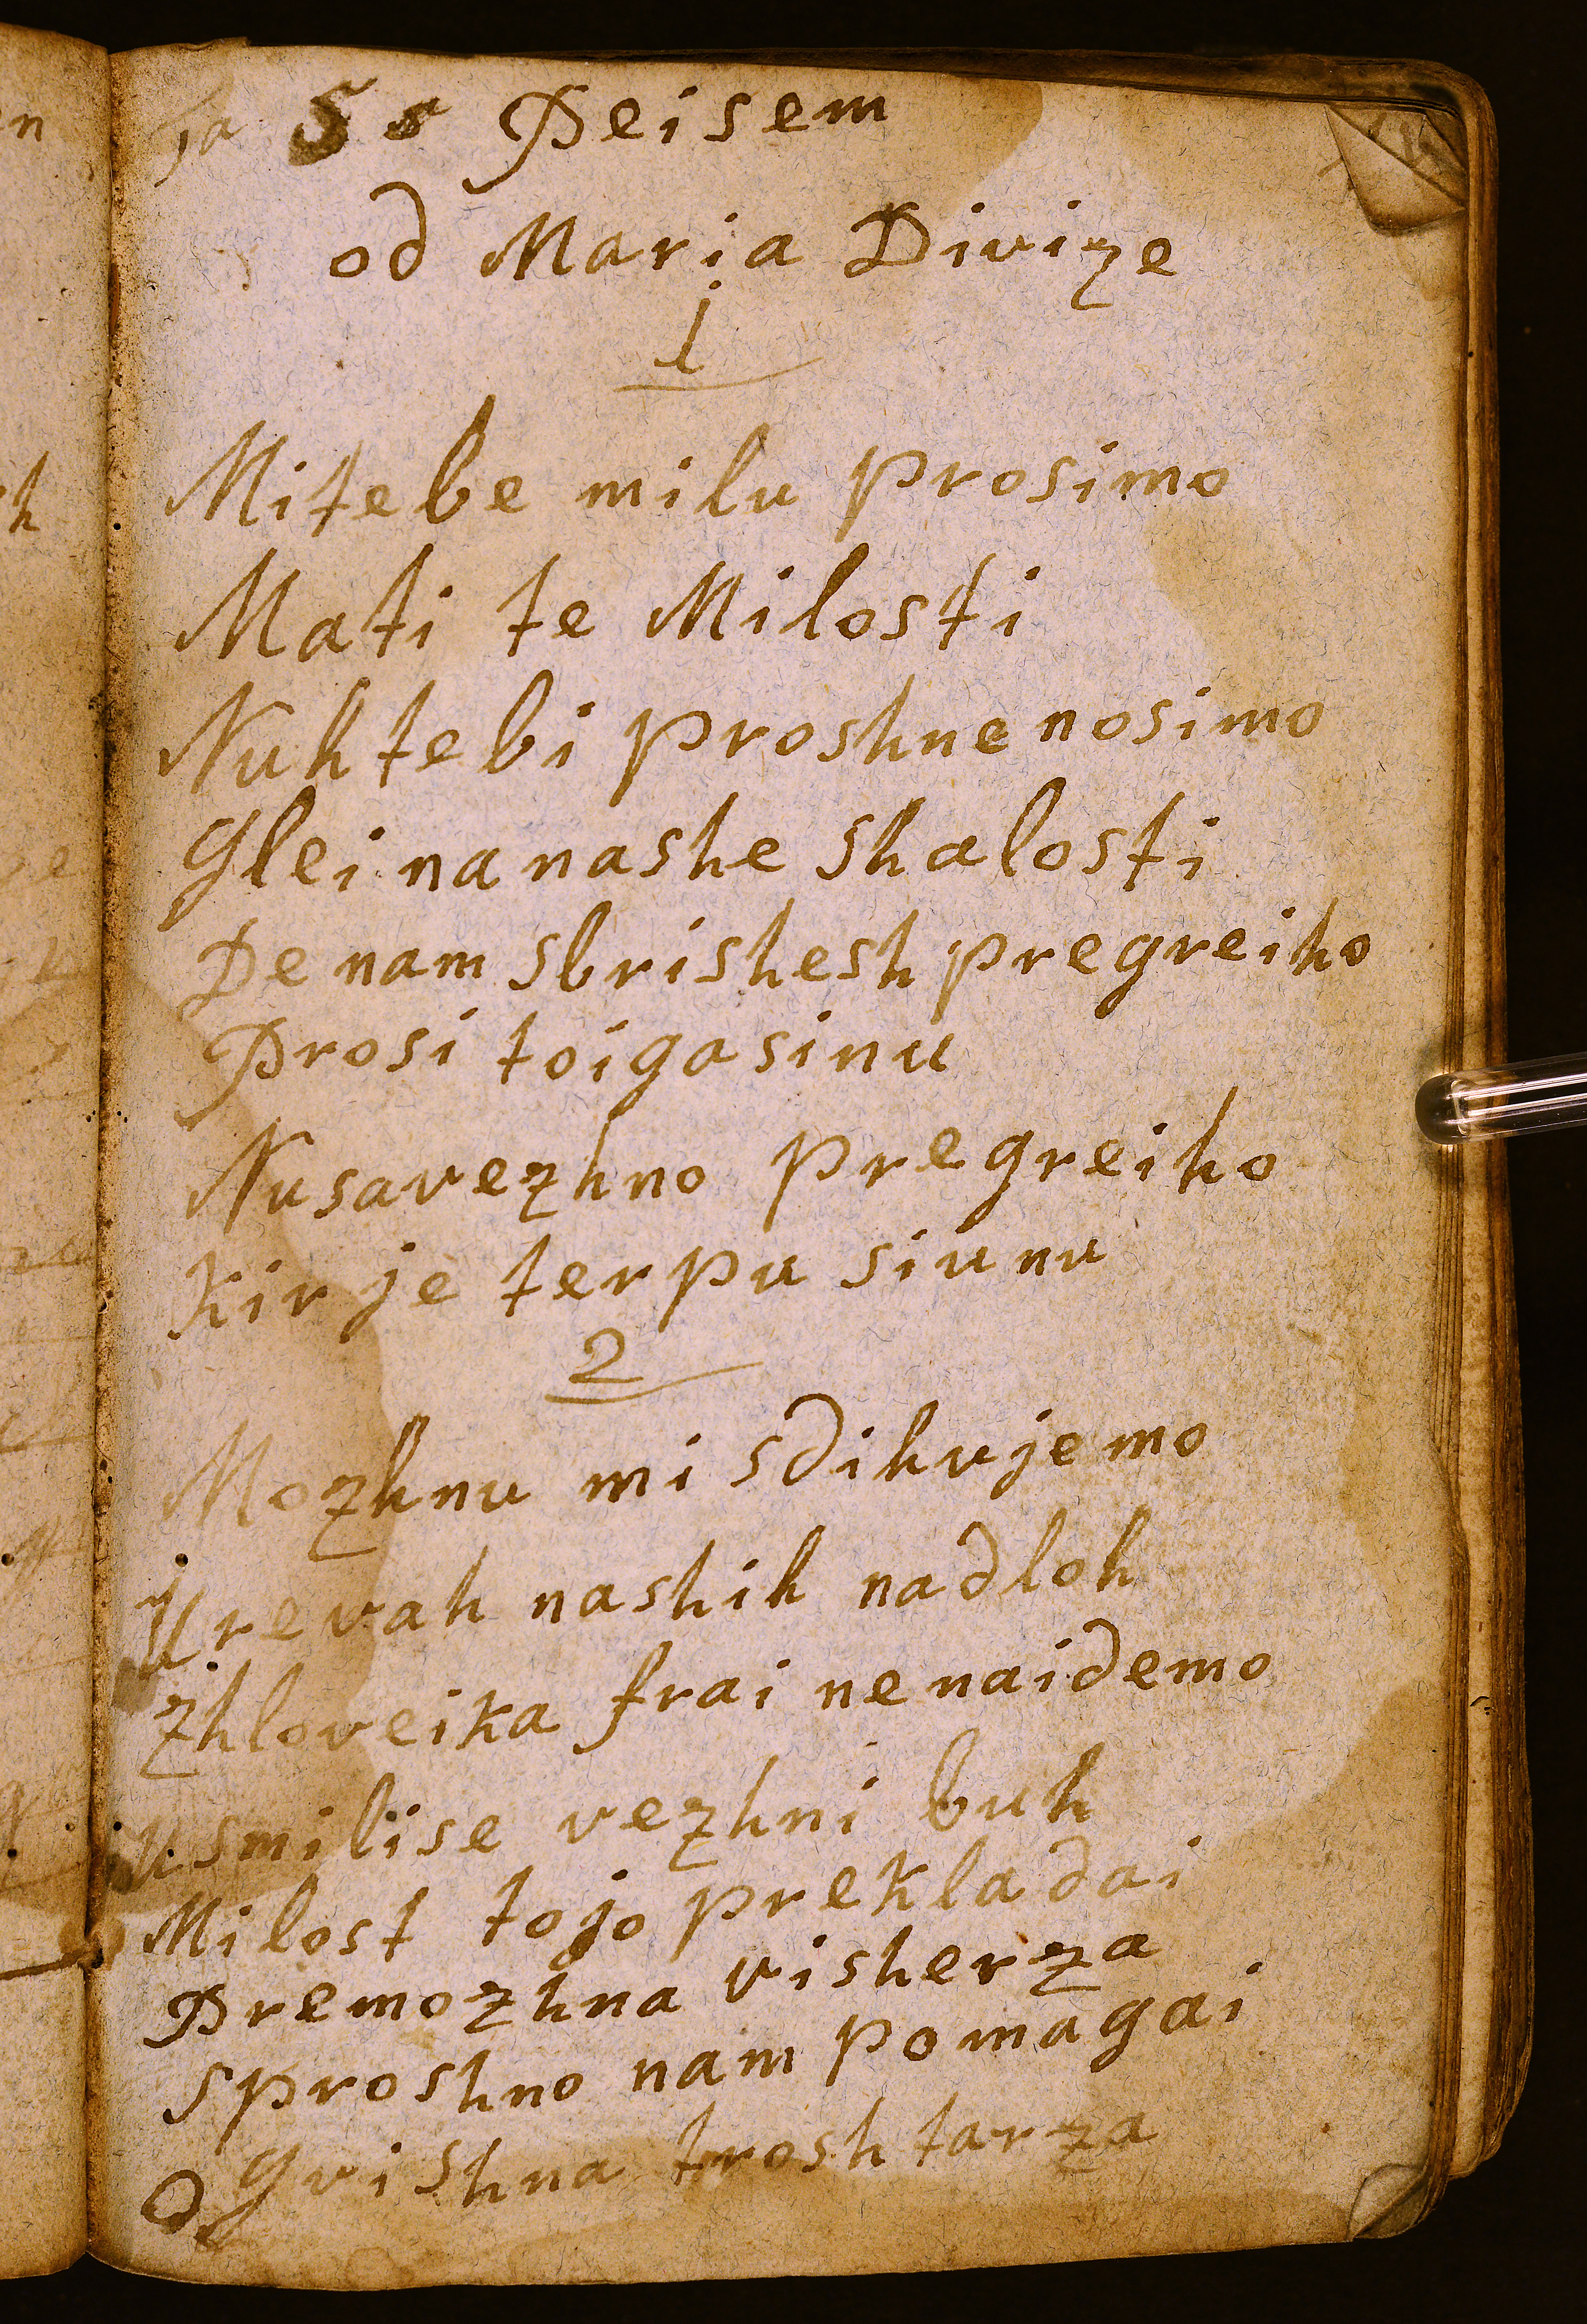 Ta 5 s Peisem
od Maria Divize
1
Mitebe milu prosimo
Mati te Milosti
Nuh tebi proshne nosimo
Glei na nashe shalosti
De nam sbrishesh pregreiho
Prosi toiga sinu
Nusavezhno pregreiho
Kir je terpu siunu
2
Mozhnu mi sdihujemo
U revah nashih nadloh
Zhloveika frai ne naidemo
usmilise vezhni buh
Milost tojo prekladai
Premozhna visherza
sproshno nam pomagai
O gvishna troshtarza